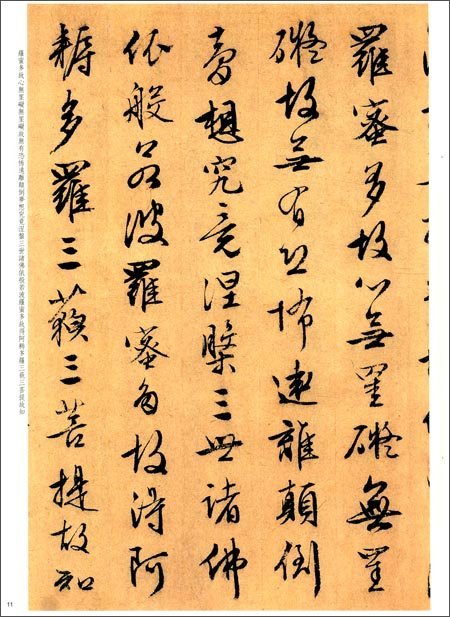 羅蜜多故心無罣礙無罣
礙故無有恐怖遠離顛倒
夢想究竟涅槃三世諸佛
依般若波羅蜜多故得阿
耨多羅三藐三菩提故知
羅蜜多故心無罣礙無罣礙故無有恐怖遠離顛倒夢想究竟涅槃三世諸佛依般若波羅蜜多故得阿耨多羅三藐三菩提故知
11